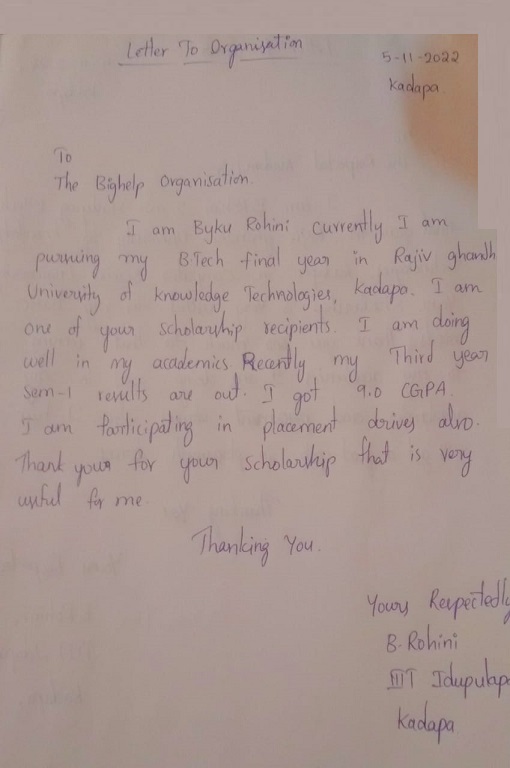 Letter To Organisation
5-11-2022
Kadapa
To
The Bighelp Organisation.
I am Byku Rohini currently I am
pursuing my B.Tech final year in Rajiv ghandh
University of knowledge Technologies, Kadapa. I am
one of your scholarship recipients. I am doing
well in my academics. Recently my Third year
Sem-1 results are out. I got 9.0 CGPA.
I am Participating in placement drives also.
Thank your for your scholarship that is very
useful for me.
Thanking You.
Yours Respectedly
B. Rohini
IIIT Idupulap
Kadapa